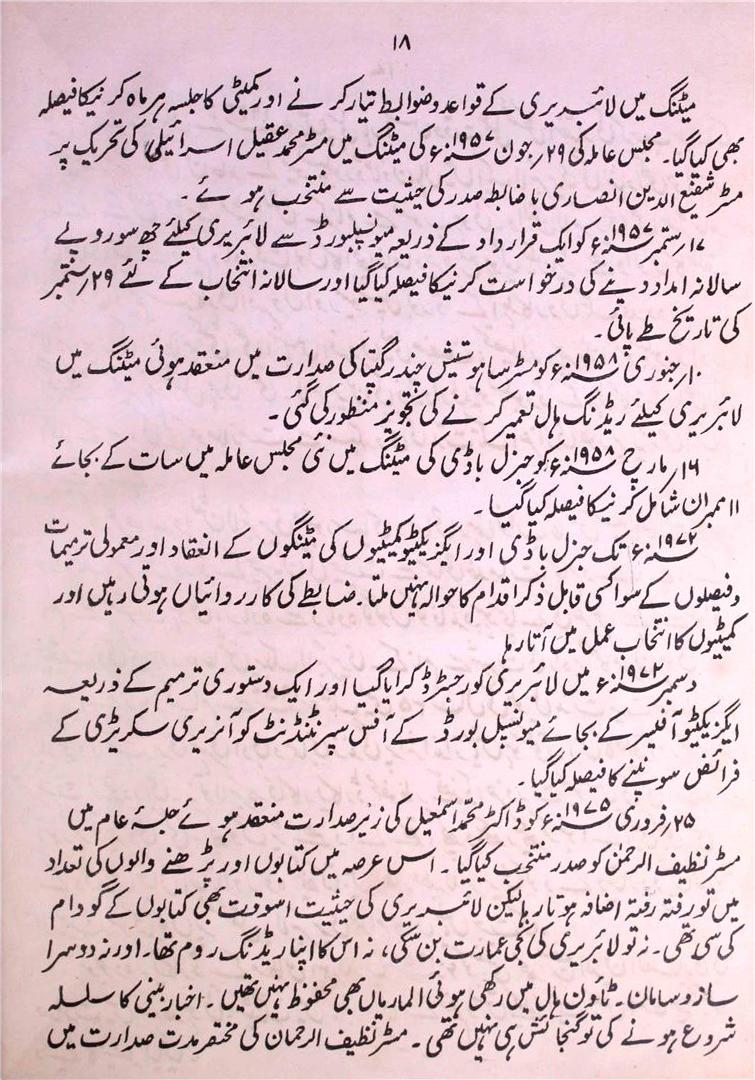 ۱۸
میٹنگ میں لائبریری کے قواعد و ضوابط تیار کرنے اور کمیٹی کا جلسہ ہر ماہ کرنیکا فیصلہ
بھی کیا گیا۔ مجلس عاملہ کی ۲۹؍جون ۱۹۵۷ء کی میٹنگ میں مسٹر محمد عقیل اسرائیلی کی تحریک پر
مسٹر شفیع الدین انصاری باضابطہ صدر کی حیثیت سے منتخب ہوئے۔
۱۷؍ستمبر ۱۹۵۷ء کو ایک قرارداد کے ذریعہ میونسپلبورڈ سے لائبریری کیلئے چھ سو روپے
سالانہ امداد دینے کی درخواست کرنیکا فیصلہ کیا گیا اور سالانہ انتخاب کے لئے ۲۹؍ستمبر
کی تاریخ طے پائی۔
۱۰؍جنوری ۱۹۵۸ء کو مسٹر ساہو ستیش چندر گپتا کی صدارت میں منعقد ہوئی میٹنگ میں
لائبریری کیلئے ریڈنگ ہال تعمیر کرنے کی تجویز منظور کی گئی۔
۱۶؍مارچ ۱۹۵۸ء کو جنرل باڈی کی میٹنگ میں نئی مجلس عاملہ میں سات کے بجائے
۱۱ ممبران شامل کرنیکا فیصلہ کیا گیا۔
۱۹۷۲ء تک جنرل باڈی اور ایگزیکٹیو کمیٹیوں کی میٹنگوں کے انعقاد اور معمولی ترمیمات
و فیصلوں کے سوا کسی قابل ذکر اقدام کا حوالہ نہیں ملتا۔ ضابطے کی کارروائیاں ہوتی رہیں اور
کمیٹیوں کا انتخاب عمل میں آتا رہا
دسمبر ۱۹۷۲ء میں لائبریری کو رجسٹرڈ کرایا گیا اور ایک دستوری ترمیم کے ذریعہ
ایگزیکٹیو آفیسر کے بجائے میونسپل بورڈ کے آفس سپرنٹنڈنٹ کو آنریری سکریٹری کے
فرائض سونپنے کا فیصلہ کیا گیا۔
۲۵؍فروری ۱۹۷۵ء کو ڈاکٹر محمد اسمٰعیل کی زیر صدارت منعقد ہوئے جلسۂ عام میں
مسٹر نظیف الرحمٰن کو صدر منتخب کیا گیا۔ اس عرصہ میں کتابوں اور پڑھنے والوں کی تعداد
میں تو رفتہ رفتہ اضافہ ہوتا رہا لیکن لائبریری کی حیثیت اسوقت بھی کتابوں کے گودام
کی سی تھی۔ نہ تو لائبریری کی نجی عمارت بن سکی، نہ اس کا اپنا ریڈنگ روم تھا۔ اور نہ دوسرا
ساز و سامان۔ ٹاؤن ہال میں رکھی ہوئی الماریاں بھی محفوظ نہیں تھیں۔ اخبار بینی کا سلسلہ
شروع ہونے کی تو گنجائش ہی نہیں تھی۔ مسٹر نظیف الرحمان کی مختصر مدت صدارت میں